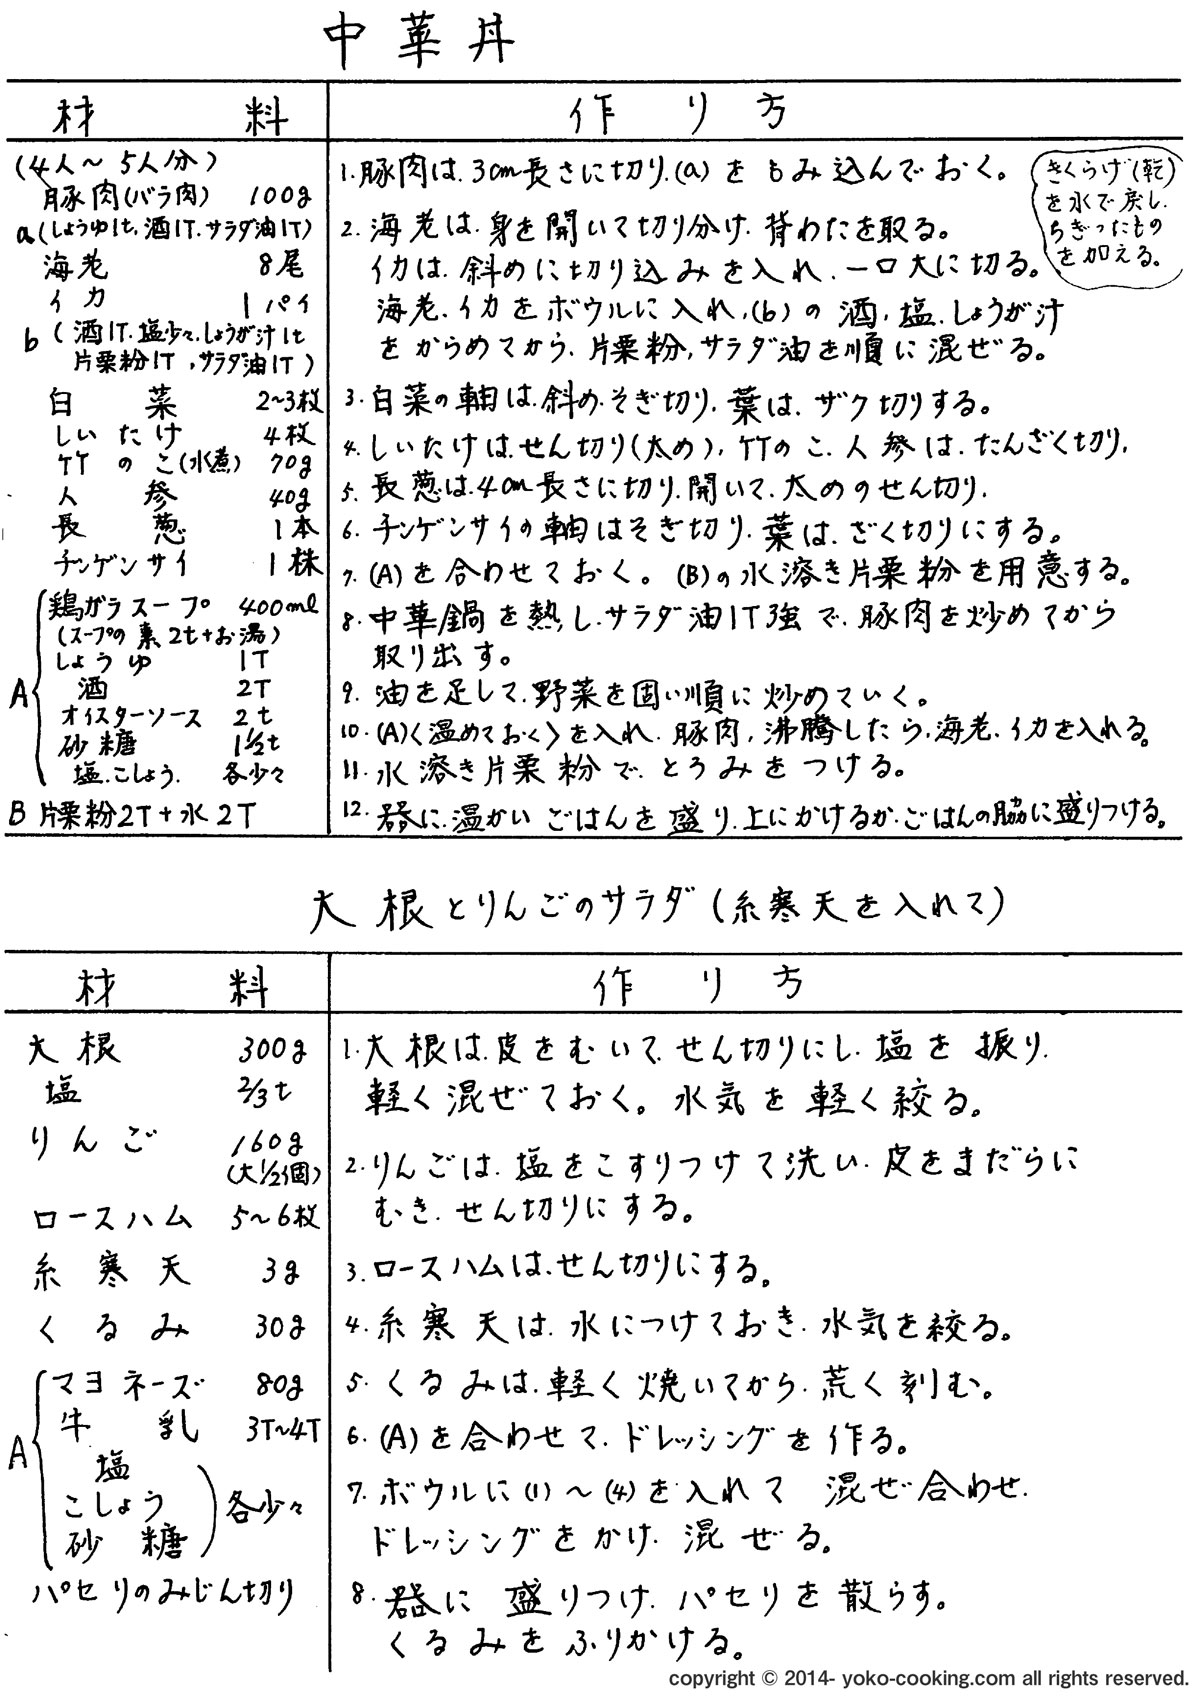 中華丼
材料
作り方
(4人～5人分)
豚肉(バラ肉) 100g
a(しょうゆ1t、酒1T、サラダ油1T)
海老 8尾
イカ 1パイ
b(酒1T、塩少々、しょうが汁1t
片栗粉1T、サラダ油1T)
白菜 2~3枚
しいたけ 4枚
竹のこ(水煮) 70g
人参 40g
長葱 1本
チンゲンサイ 1株
A
鶏ガラスープ 400ml
(スープの素2t+お湯)
しょうゆ 1T
酒 2T
オイスターソース 2t
砂糖 1½t
塩、こしょう、各少々
B 片栗粉2T+水2T
1.豚肉は、3cm長さに切り、(a)をもみ込んでおく。
2.海老は、身を開いて切り分け、背わたを取る。
イカは、斜めに切り込みを入れ、一口大に切る。
海老、イカをボウルに入れ、(b)の酒、塩、しょうが汁
をからめてから、片栗粉、サラダ油を順に混ぜる。
3.白菜の軸は、斜めそぎ切り、葉は、ザク切りする。
4.しいたけは、せん切り(太め)、竹のこ、人参は、たんざく切り、
5.長葱は、4cm長さに切り、開いて、太めのせん切り、
6.チンゲンサイの軸はそぎ切り、葉は、ざく切りにする。
7.(A)を合わせておく。(B)の水溶き片栗粉を用意する。
8.中華鍋を熱し、サラダ油1T強で、豚肉を炒めてから
取り出す。
9.油を足して、野菜を固い順に炒めていく。
10.(A)〈温めておく〉を入れ、豚肉、沸騰したら、海老、イカを入れる。
11.水溶き片栗粉で、とろみをつける。
12.器に、温かいごはんを盛り、上にかけるか、ごはんの脇に盛りつける。
きくらげ(乾)
を水で戻し、
ちぎったもの
を加える。
大根とりんごのサラダ(糸寒天を入れて)
材料
作り方
大根 300g
塩 2/3t
りんご 160g
(大1/2個)
ロースハム 5~6枚
糸寒天 3g
くるみ 30g
A
マヨネーズ 80g
牛乳 3T~4T
塩
こしょう
砂糖
各少々
パセリのみじん切り
1.大根は、皮をむいて、せん切りにし、塩を振り、
軽く混ぜておく。水気を軽く絞る。
2.りんごは、塩をこすりつけて洗い、皮をまだらに
むき、せん切りにする。
3.ロースハムは、せん切りにする。
4.糸寒天は、水につけておき、水気を絞る。
5.くるみは、軽く焼いてから、荒く刻む。
6.(A)を合わせて、ドレッシングを作る。
7.ボウルに(1)～(4)を入れて 混ぜ合わせ、
ドレッシングをかけ、混ぜる。
8.器に盛りつけ、パセリを散らす。
くるみをふりかける。
copyright © 2014- yoko-cooking.com all rights reserved.